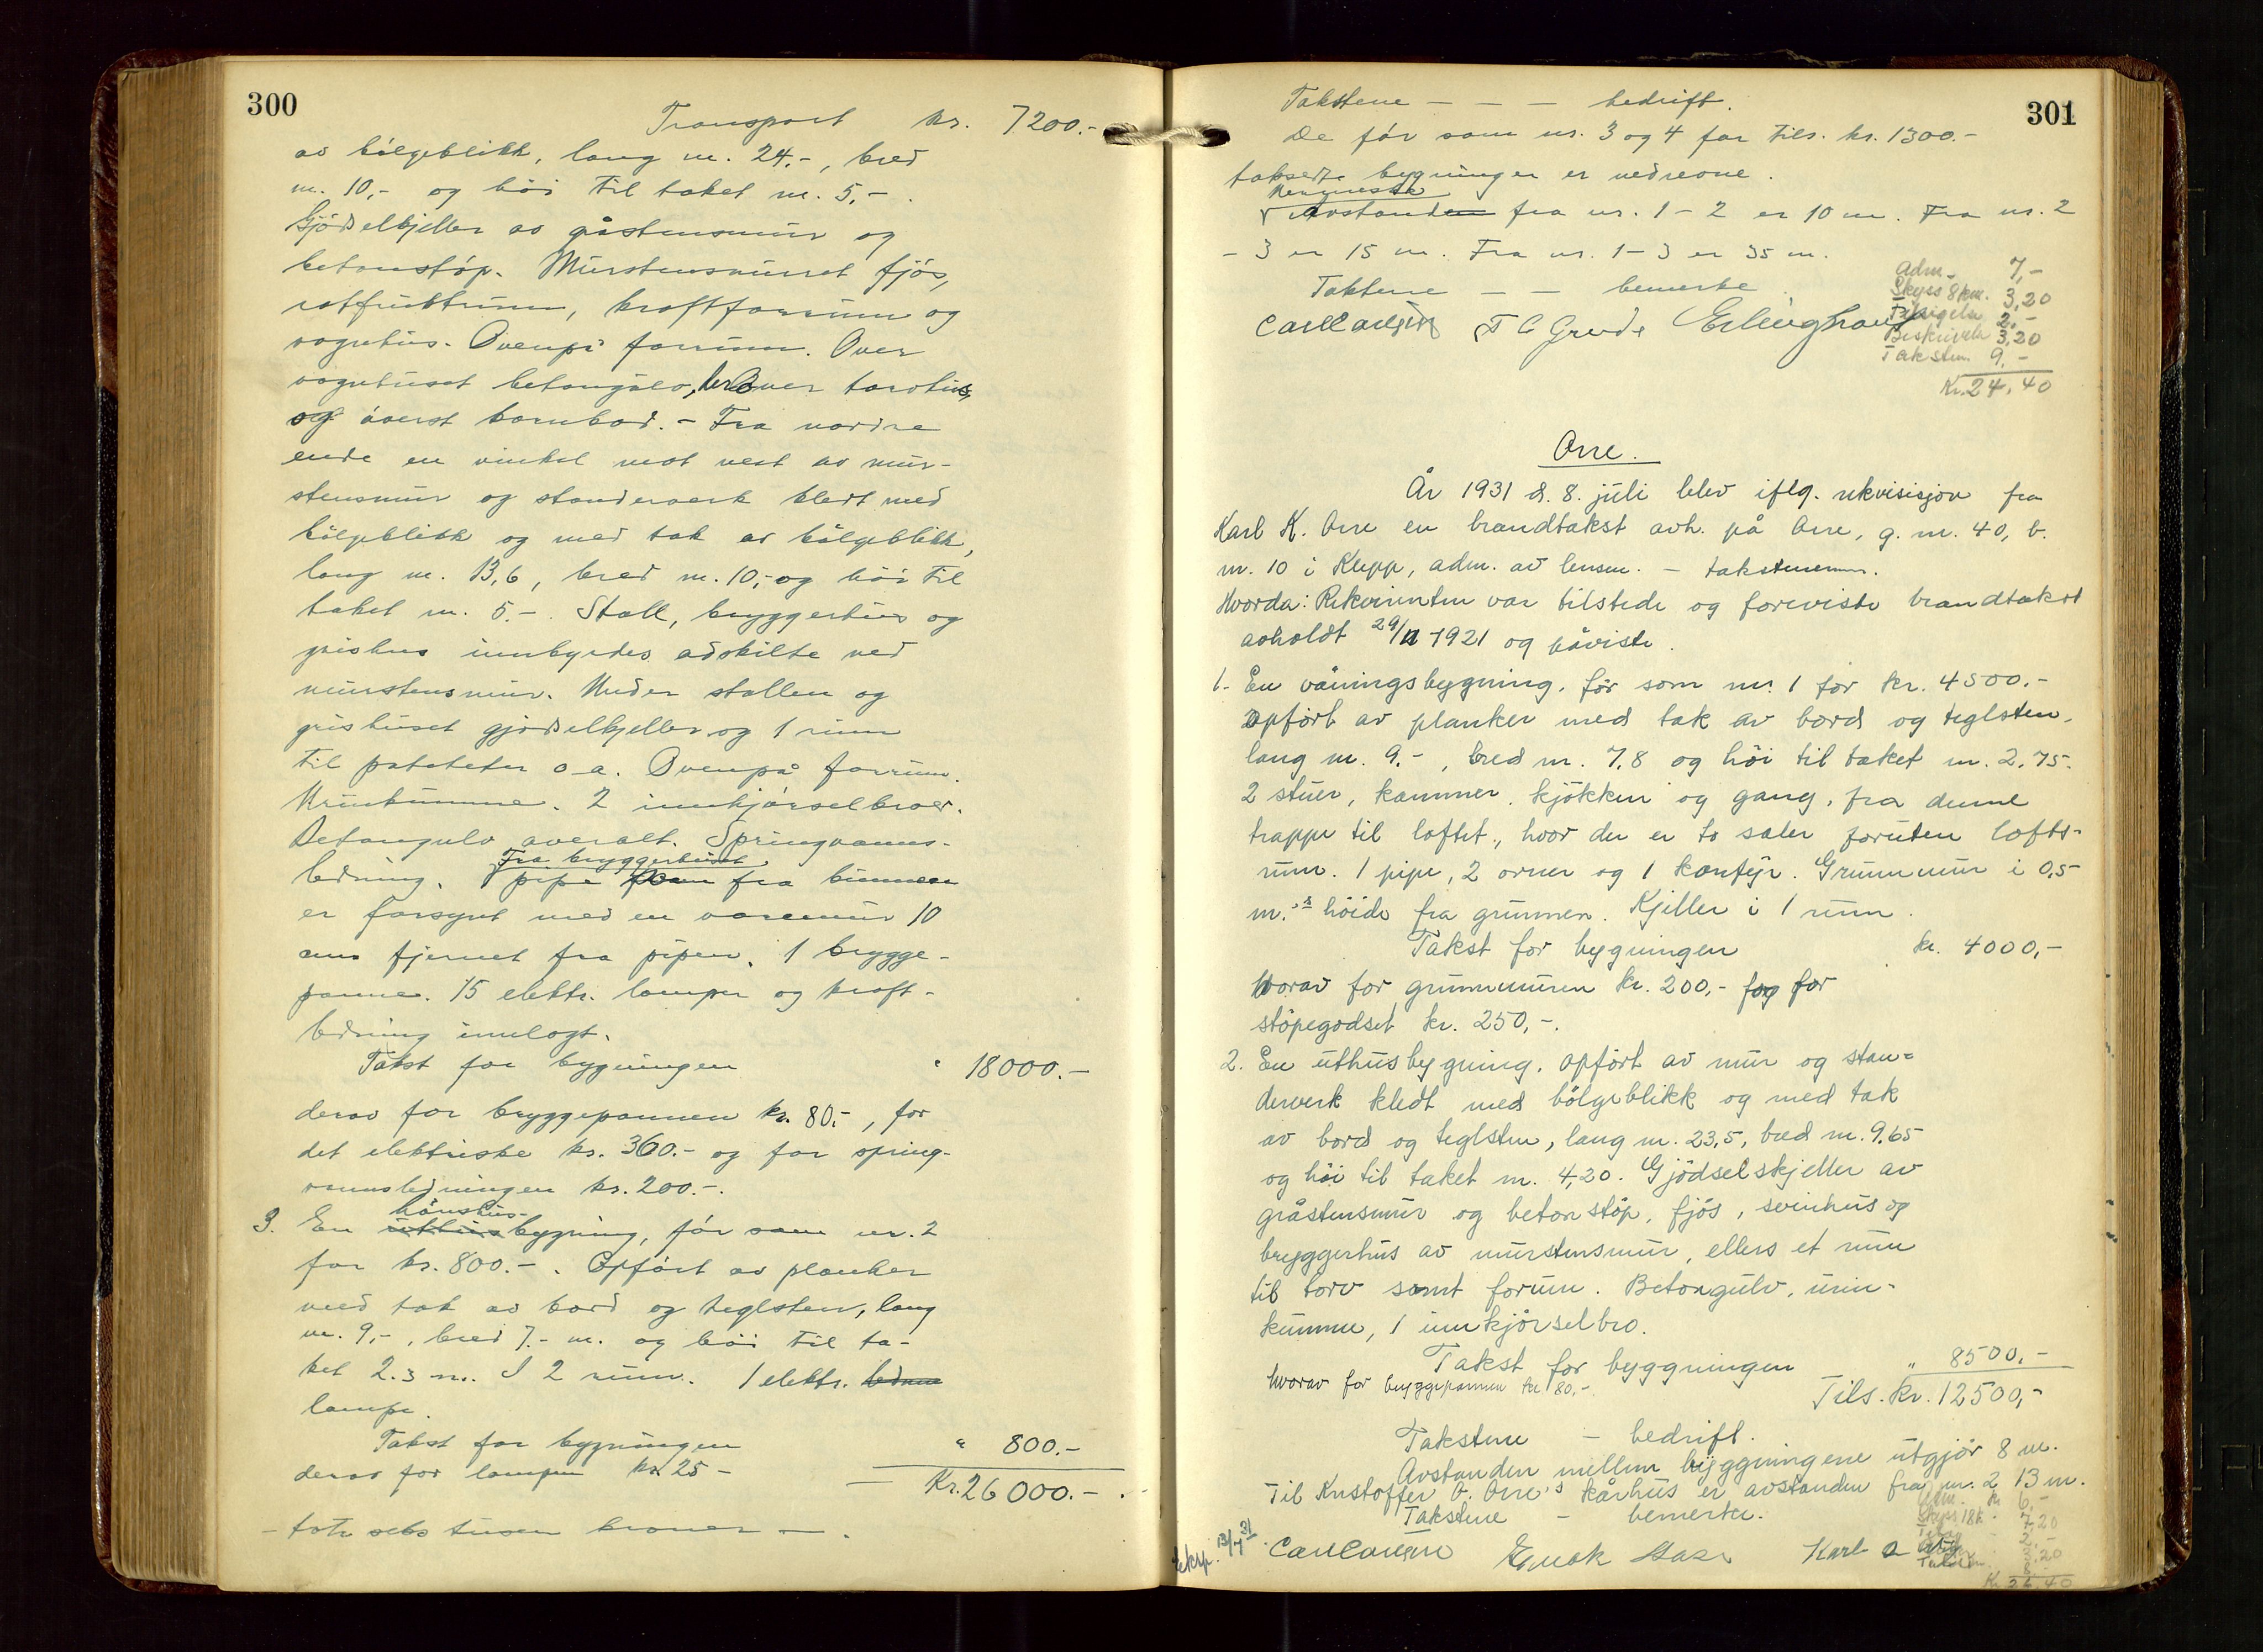 300
Transport kr. 7200.-
av bölgeblikk, lang m. 24.-, bred
m. 10,- og höi til taket m. 5,-.
Gjödselkjeller av gåstensmur og
betonstöp. Murstensmurret fjös,
rotfruktrum, kraftforrum og
vognhus. Ovenpå forrum. Over
vognhuset betongulv, over torvhus,
og överst kornbod. - Fra nordre
ende en vinkel mot vest av mur-
stensmur og standerverk kledt med
bölgeblikk og med tak av bölgeblikk,
lang m. 13,6, bred m. 10,- og höi til
taket m. 5.-. Stall, bryggerhus og
grishus innbyrdes adskilte ved
murstensmur. Under stallen og
grishuset gjödselkjeller og 1 rum
til poteter o a. Ovenpå forrum.
Urinkumme. 2 innkjörselbroer.
Betongulv overalt. Springvanns-
Fra bryggerhuset
ledning. pipe som fra binneren
er forsynt med en varemur 10
cm. fjernet fra pipen. 1 brygge-
panne. 15 elektr. lamper og kraft-
ledning innlagt.
Takst for bygningen " 18000.-
derav for bryggepannen kr. 80.-, for
det elektriske kr. 360.- og for spring-
vannsledningen kr. 200.-.
hönshus-
3. En uthusbygning, för som nr. 2
for kr. 800.-. Opfört av planker
med tak av bord og teglsten, lang
m. 9,-, bred 7.- m. og höi til ta-
ket 2.3 m. I 2 rum. 1 elektr.
lampe.
Takst for bygningen " 800.-
derav for lampen kr. 25 -
Kr. 26000.-.
- toti seks tusen kroner -.
301
Takstene - - - bedrift.
De för som nr. 3 og 4 for tils. kr. 1300.-
takserte bygninger er nedrevne.
Avstanden fra nr. 1 - 2 er 10 m. Fra nr. 2
- 3 er 15 m. Fra nr. 1 - 3 er 35 m.
Takstene - - bemerke
Adm. 7,-
Skyss 8 km. 3,20
Tilsigelse 2,-
Beskrivelse 3,20
Takstm. 9,-
Kr. 24,40
Carl Carlsen T C Grude Erling Braut
Orre.
År 1931 d. 8. juli blev iflg. rekvisisjon fra
Karl K. Orre en brandtakst avh. på Orre, g. nr. 40, b.
nr. 10 i Klepp, adm. av lensm. - takstmenn.
Hvorda: Rekvirenten var tilstede og foreviste brandtakst
avholdt 29/11 1921 og påviste.
1. En våningsbygning, för som nr. 1 for kr. 4500.-
Opfört av planker med tak av bord og teglsten,
lang m. 9.-, bred m. 7,8 og höi til taket m. 2,75.
2 stuer, kammer, kjökken og gang, fra denne
trappe til loftet, hvor der er to saler foruten lofts-
rum. 1 pipe, 2 ovner og 1 komfyr. Grunnmur i 0,5
m.'s höide fra grunnen. Kjeller i 1 rum.
Takst for bygningen kr. 4000,-
Hvorav for grunnmuren kr. 200,- og for
stöpegodset kr. 250,-.
2. En uthusbygning, opfört av mur og stan-
derverk kledt med bölgeblikk og med tak
av bord og teglsten, lang m. 23,5, bred m. 9,65
og höi til taket m. 4,20. Gjödselskjeller av
gråstensmur og betonstöp, fjös, svinhus og
bryggerhus av murstensmur, ellers et rum
til torv samt forrum. Betongulv, urin-
kumme, 1 innkjörselbro.
Takst for byggningen " 8500,-
Hvorav for bryggepannen kr 80,-.
Tils. kr. 12500,-
Takstene - bedrift.
Avstanden mellem byggningene utgjör 8 m.
Til Kristoffer O. Orre's kårhus er avstanden fra nr. 2 13 m.
Takstene - bemerke.
Adm. kr 6,-
Skyss 18k. 7,20
Kr 26,40
Eksp. 13/7 31. Carl Carlsen Karl